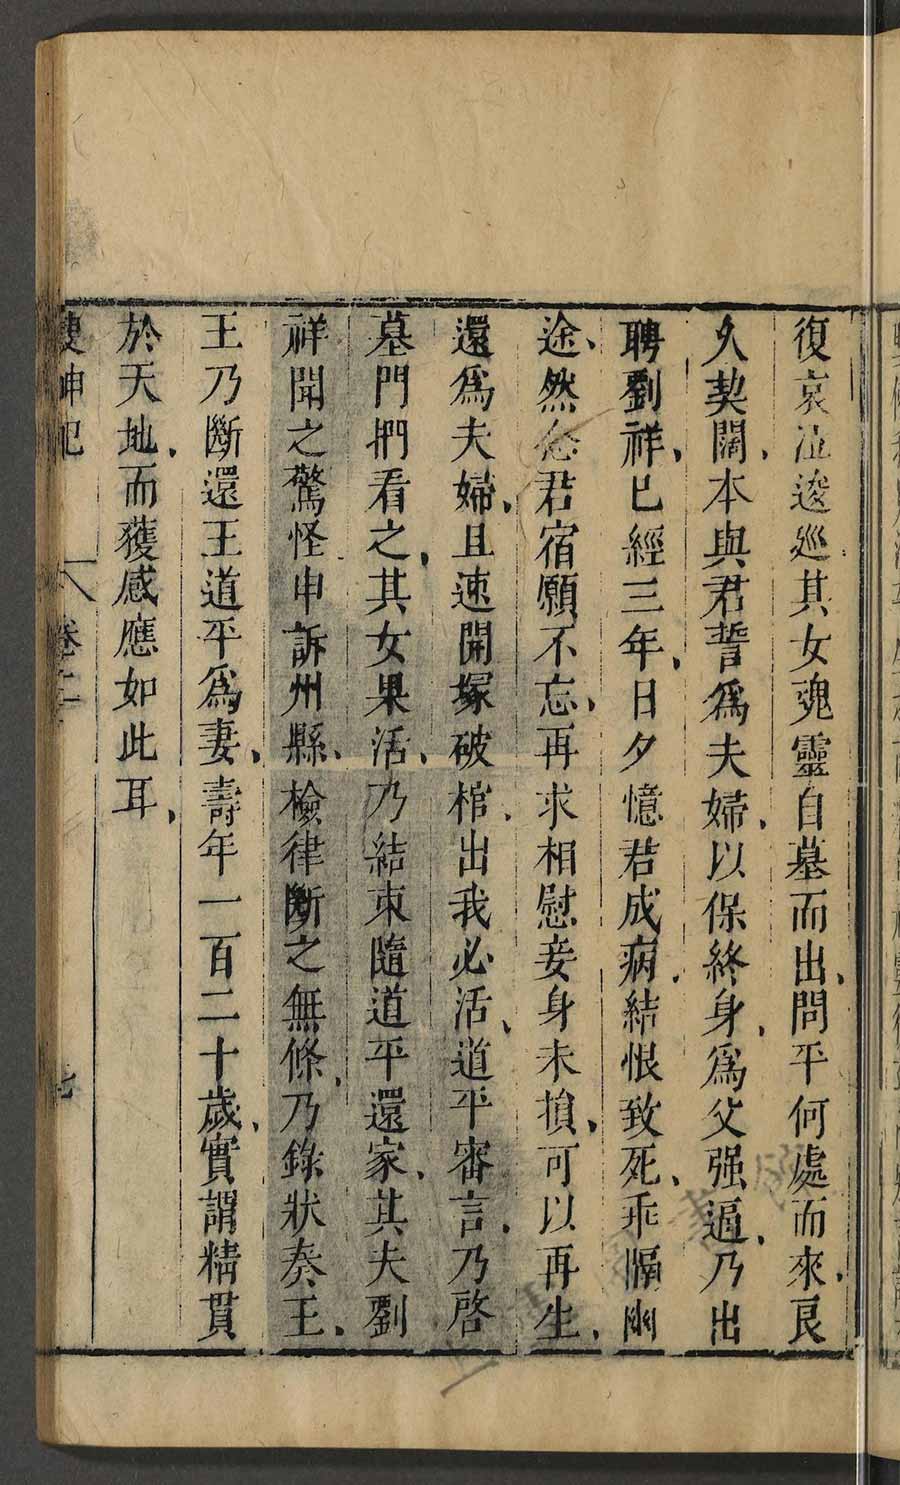 復哀泣逡巡其女魂靈自墓而出、問平何處而來、良
久契闊、本與君誓爲夫婦、以保終身、爲父强逼、乃出
聘劉祥、已經三年、日夕憶君成病、結恨致死、乖隔幽
途、然念君宿願不忘、再求相慰妾身未損、可以再生、
還爲夫婦、且速開塚破棺、出我必活、道平審言、乃啓
墓門捫看之、其女果活、乃結束隨道平還家、其夫劉
祥聞之驚怪申訴州縣、檢律斷之無條、乃錄狀奏王、
王乃斷還王道平爲妻、壽年一百二十歲、實謂精貫
於天地、而獲感應如此耳、
搜神記 卷十五 七